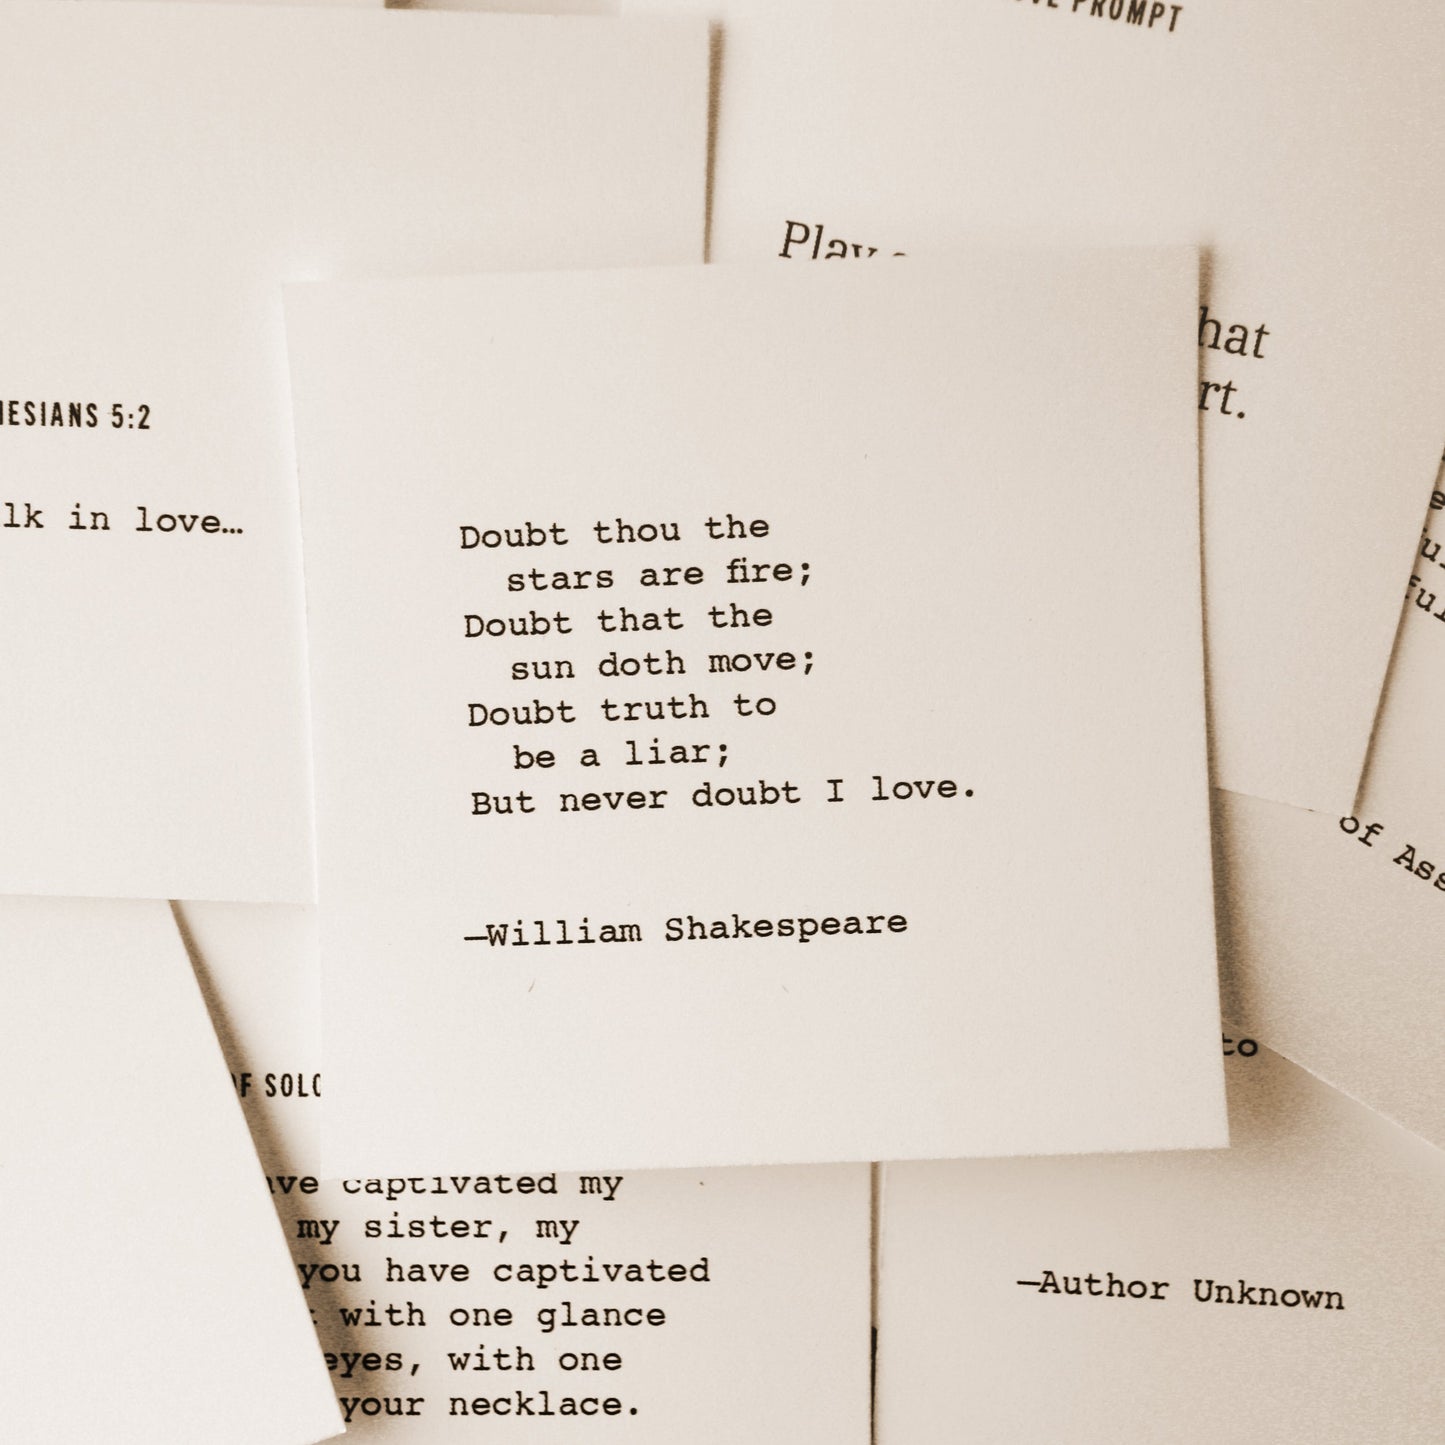 PROMPT
hat
rt.
HESIANS 5:2
lk in love…
Doubt thou the
stars are fire;
Doubt that the
sun doth move;
Doubt truth to
be a liar;
But never doubt I love.
—William Shakespeare
of Ass
to
OF SOLO
ve captivated my
my sister, my
you have captivated
with one glance
eyes, with one
your necklace.
—Author Unknown